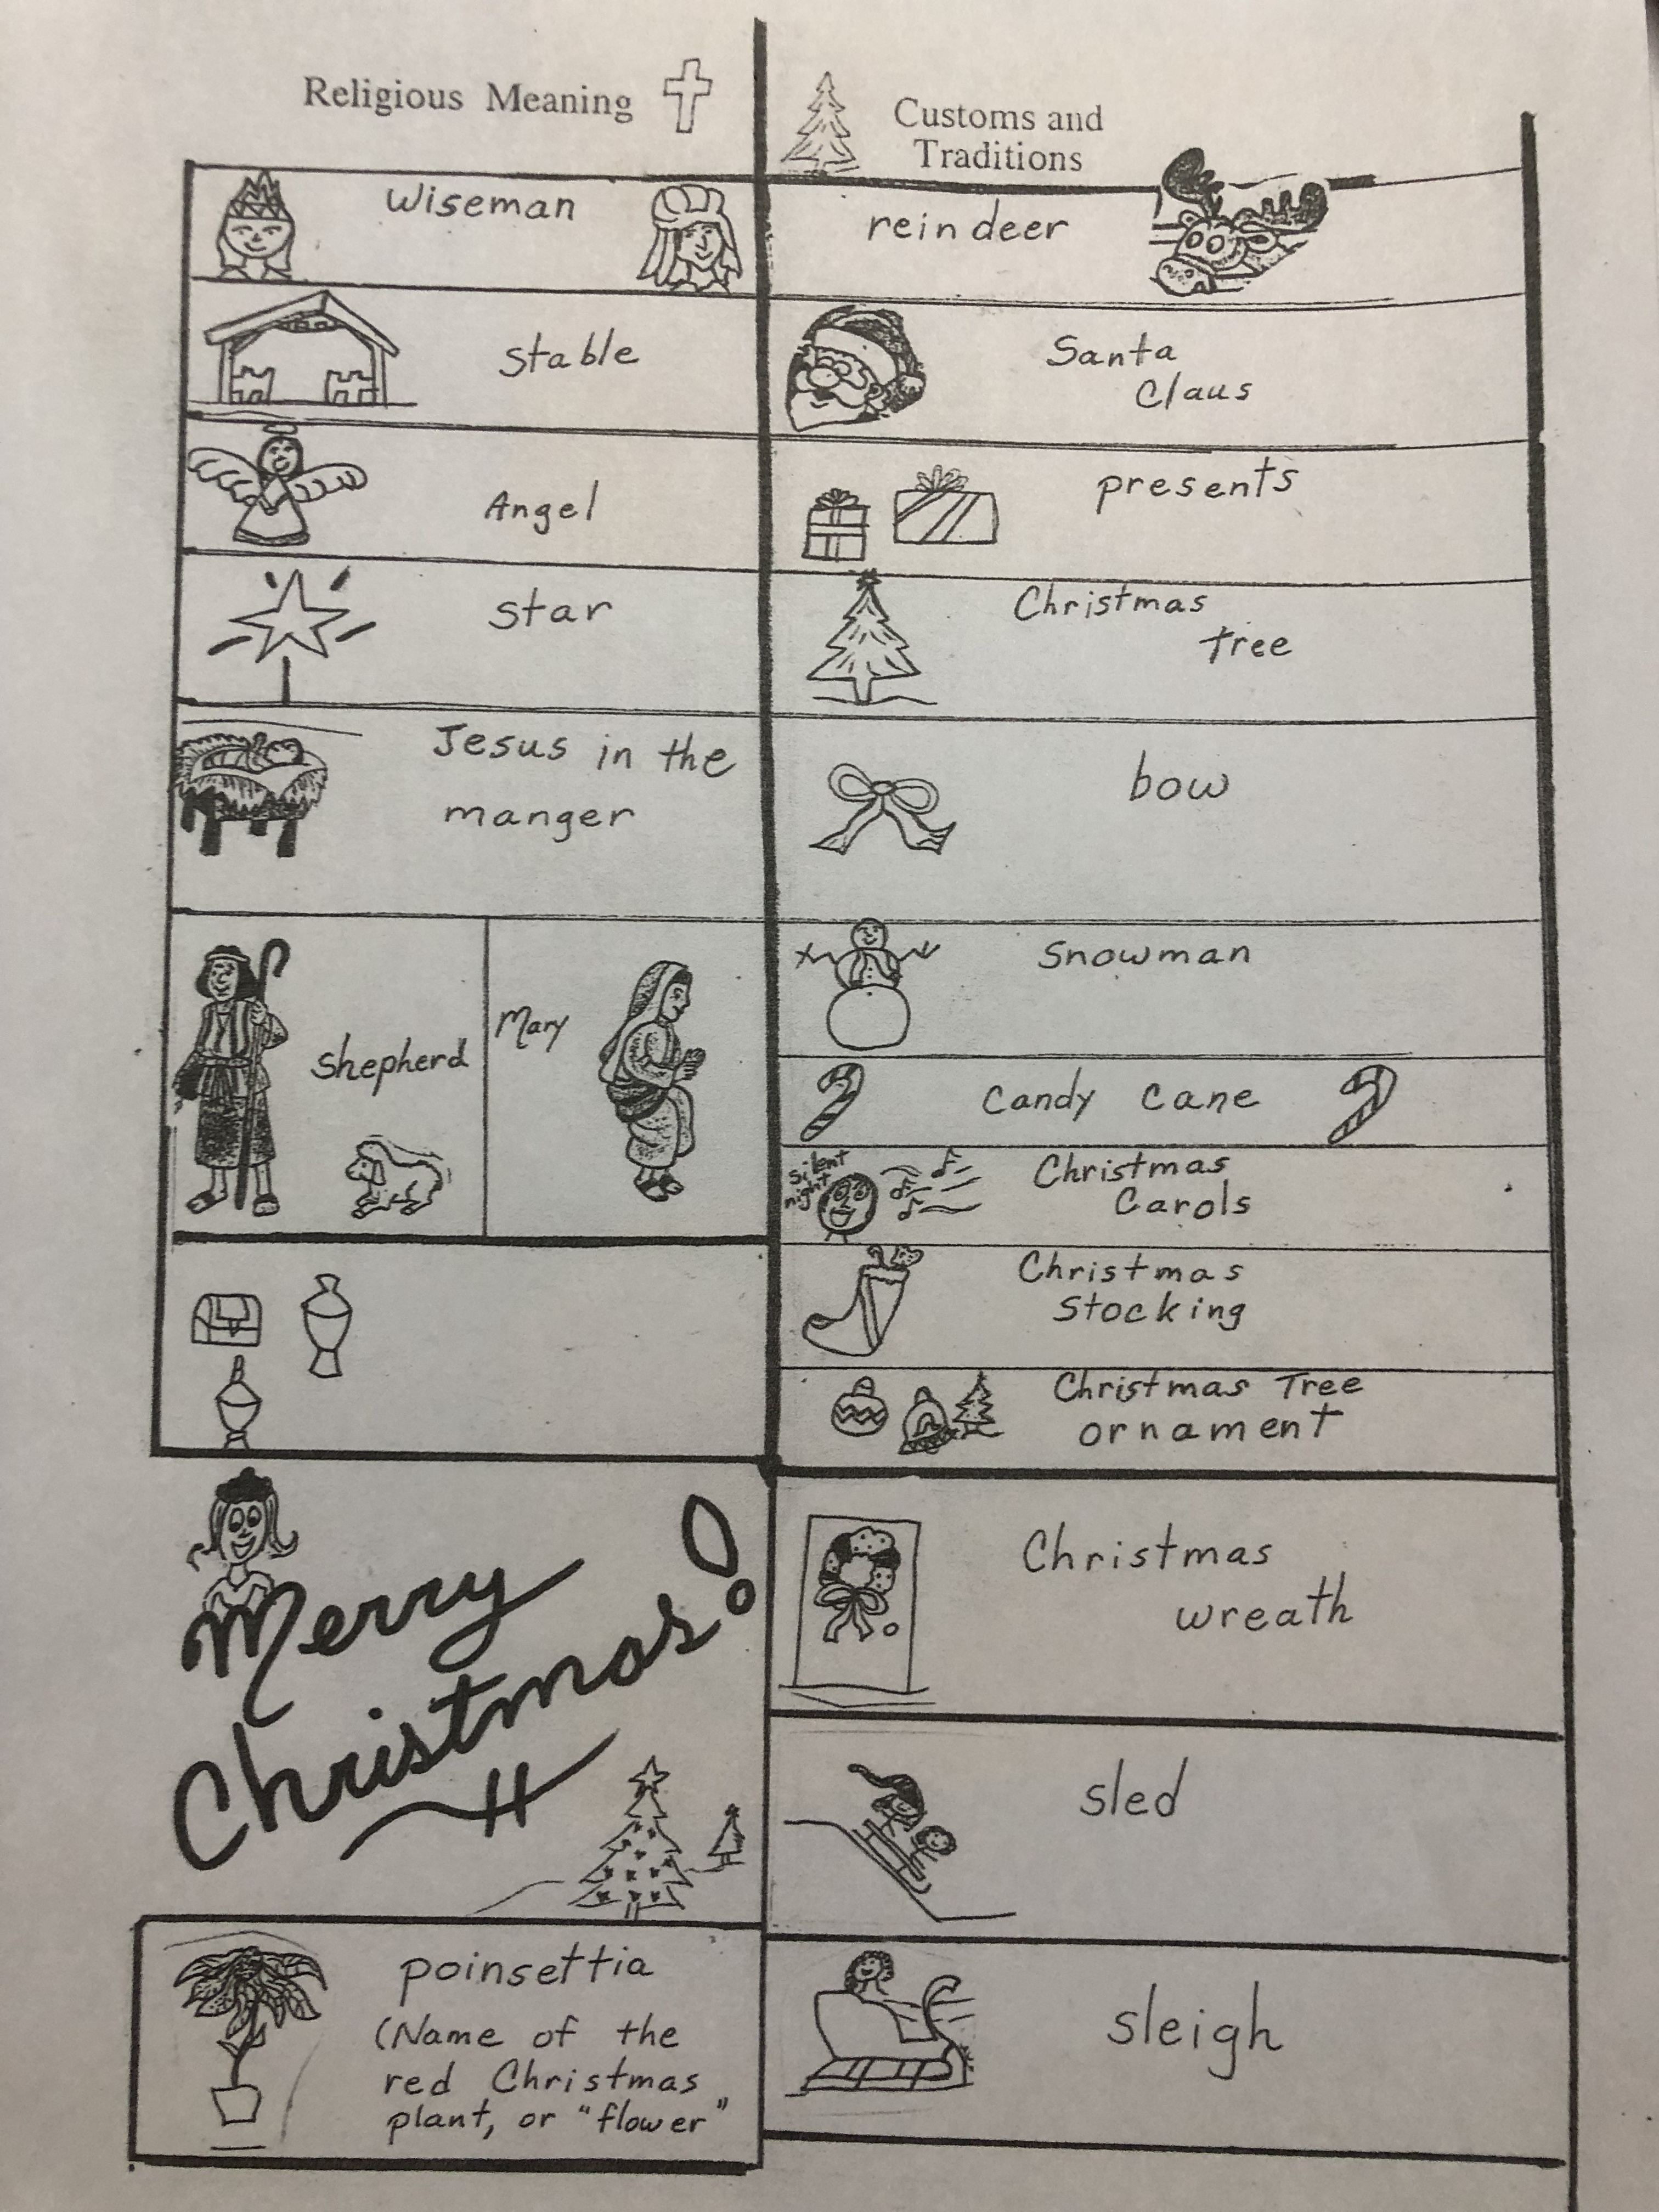 Religious Meaning
Wiseman
Stable
Angel
Star
Jesus in the
manger
shepherd
Mary
Merry
Christmas!
poinsettia
(Name of the
red Christmas
plant, or "flower"
Customs and
Traditions
reindeer
Santa
Claus
presents
Christmas
tree
bow
Snowman
Candy Cane
silent
night
Christmas
Carols
Christmas
Stocking
Christmas Tree
ornament
Christmas
wreath
sled
sleigh